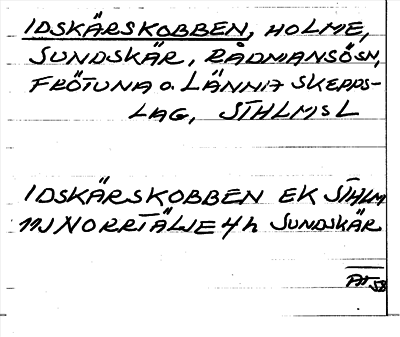 IDSKÄRSKOBBEN, HOLME,
SUNDSKÄR, RÅDMANSÖSN,
FRÖTUNA O. LÄNNA SKEPPS-
LAG, STHLMS L
IDSKÄRSKOBBEN EK STHLM
11J NORRTÄLJE 4h SUNDSKÄR
AH 58